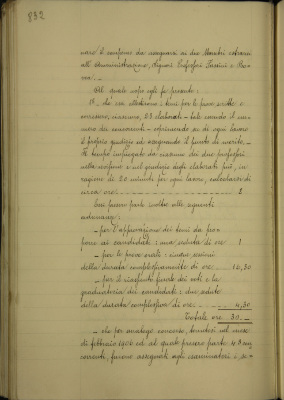 832
nare il compenso da assegnarsi ai due Membri estranei
all'Amministrazione, Signori Professori Passini e
Al quale scopo egli fa presente:
1° che essi allestirono i temi per le prove scritte e
corressero, ciascuno, 23 elaborati - tale essendo il nu-
mero dei concorrenti - esprimendo su di ogni lavoro
il proprio giudizio ed assegnando il punto di merito.-
Il tempo impiegato da ciascuno dei due professori
nella revisione e nel giudizio degli elaborati fu, in
ragione di 20 minuti per ogni lavoro, calcolato di
circa ore 8
Essi fecero parte inoltre alle seguenti
adunanze:
- per l'approvazione dei temi da pro-
porre ai candidati: una seduta di ore 1
- per le prove orali: cinque sessioni
della durata complessivamente di ore 16,30
- per il riassunto finale dei voti e la
graduatoria dei candidati: due sedute
della durata complessiva di ore 4,30
Totale ore 30.-
- che per analogo concorso, tenutosi nel mese
di febbraio 1906 ed al quale presero parte 43 con-
correnti, furono assegnate agli esaminatori i se-